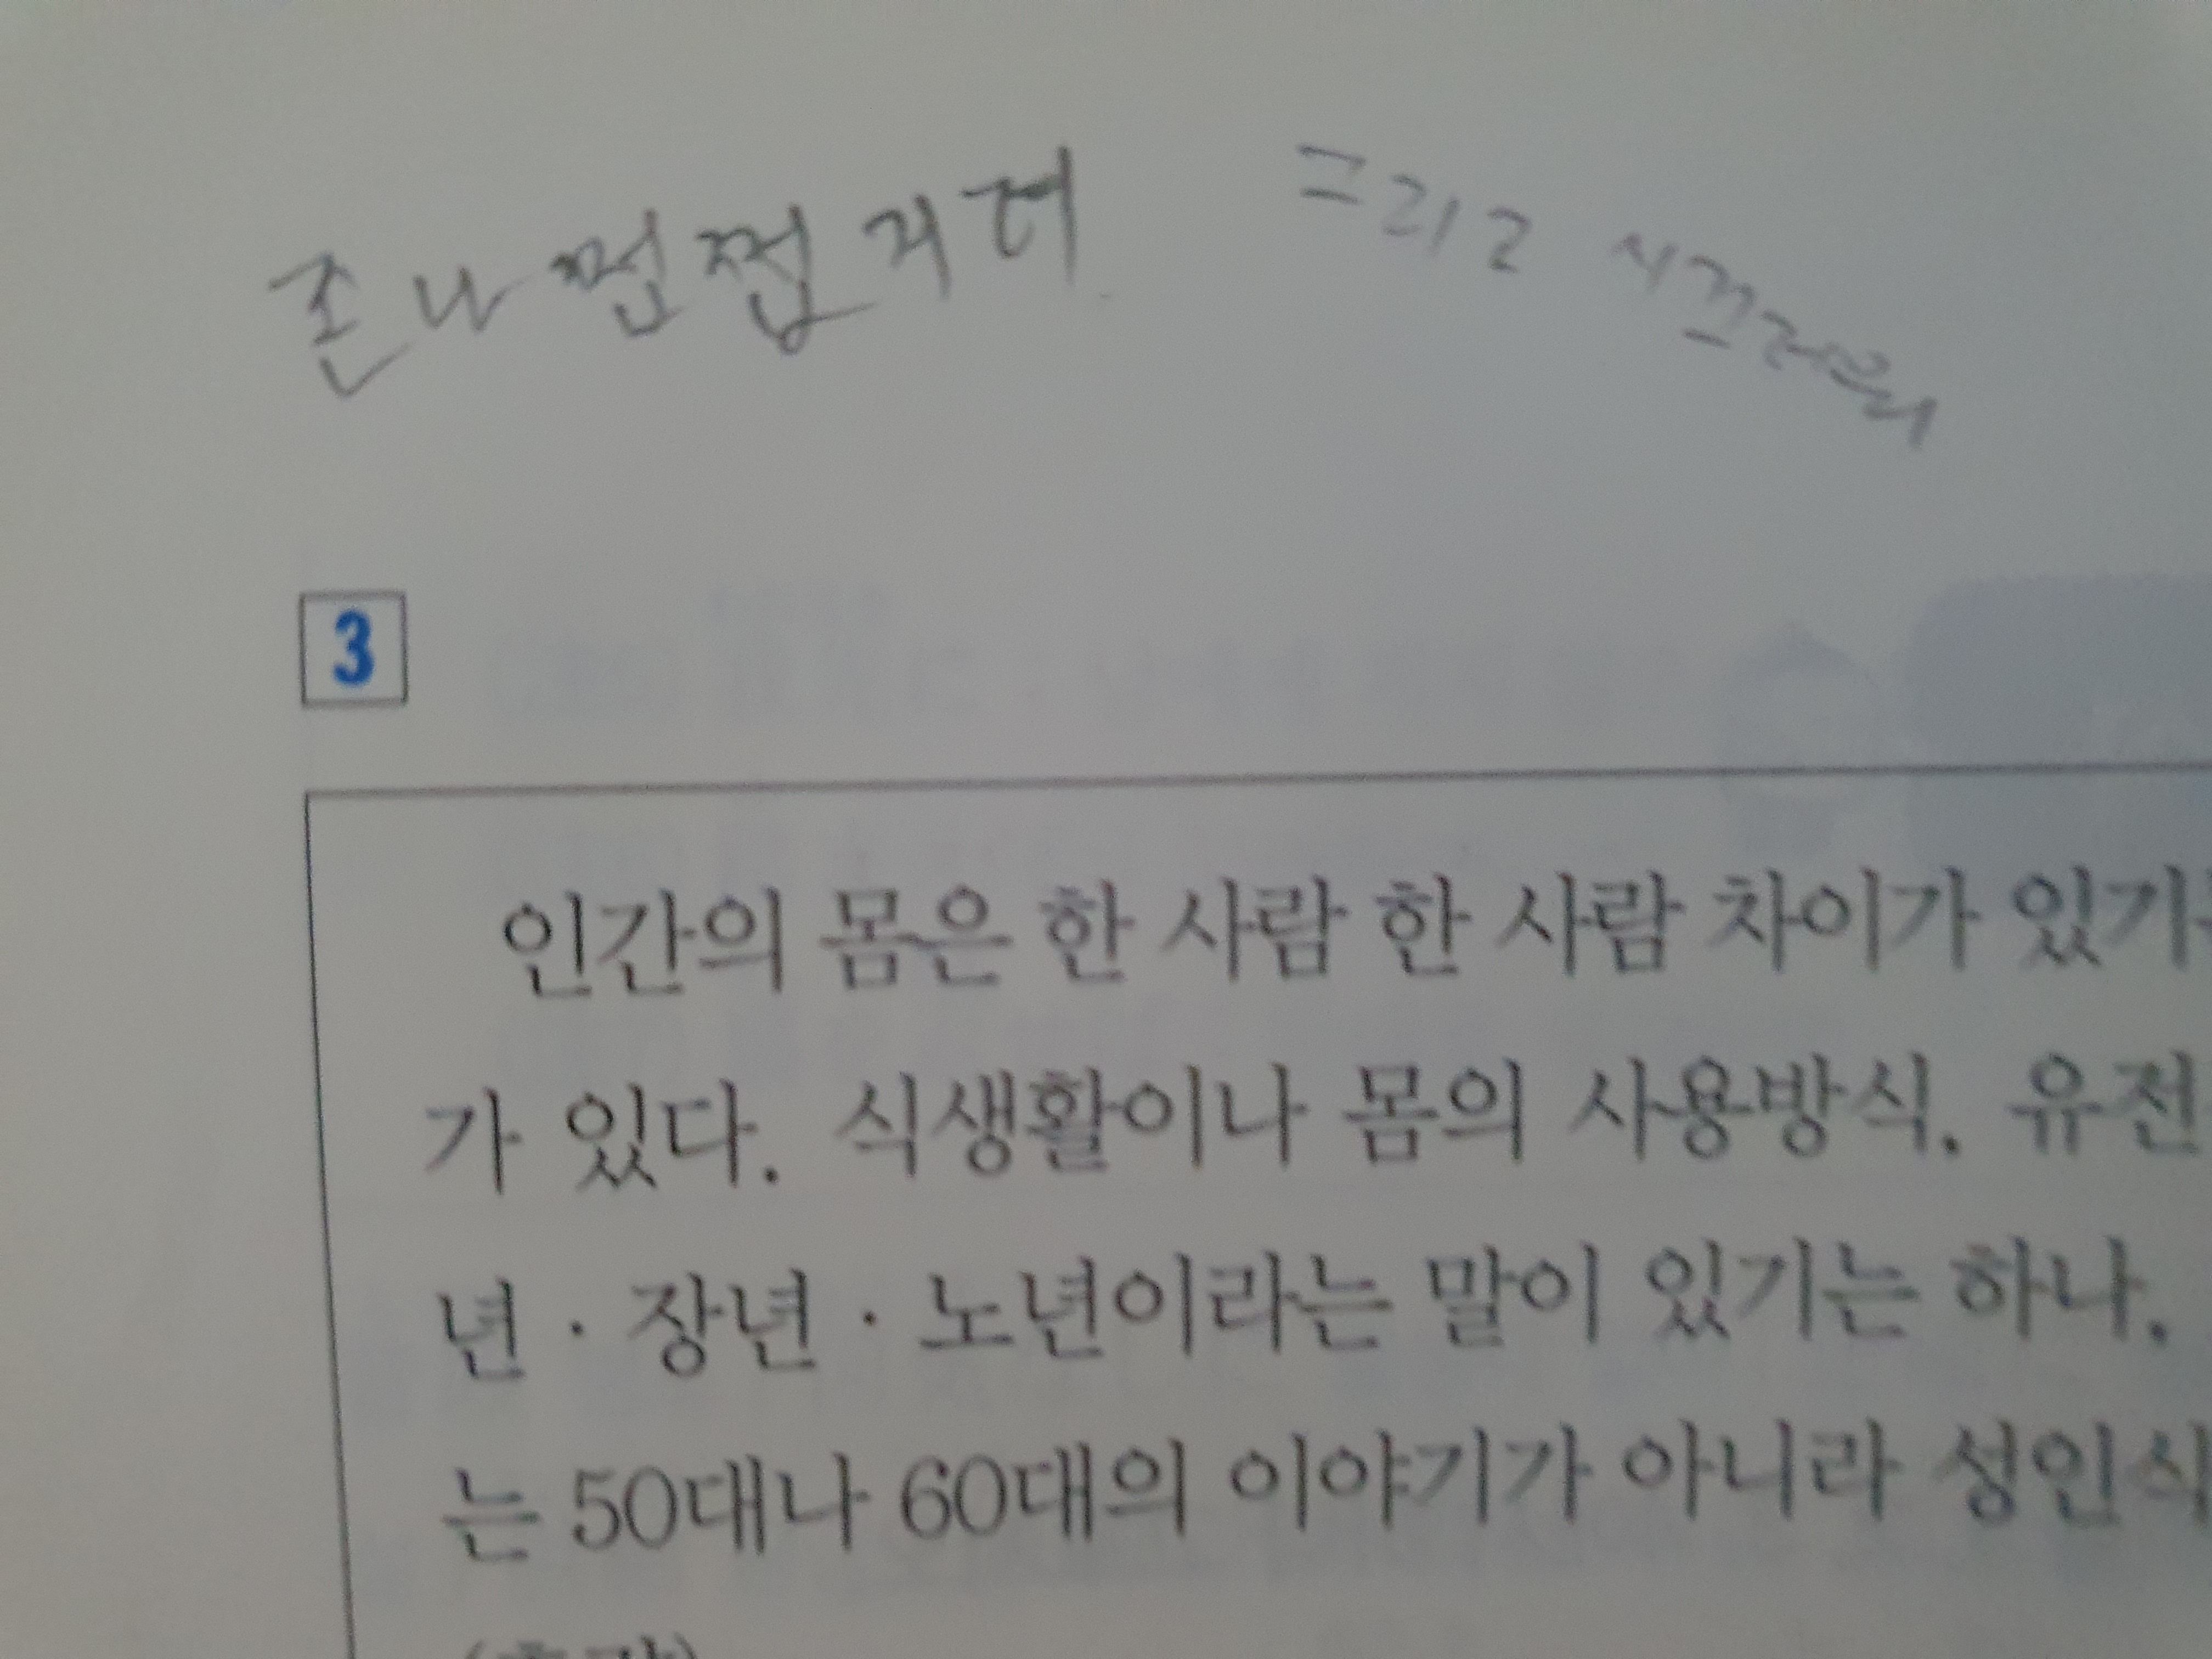 존나 쩝쩝거려 그리고 시끄러워
3
인간의 몸은 한 사람 한 사람 차이가 있기
가 있다. 식생활이나 몸의 사용방식. 유전
년 · 장년 · 노년이라는 말이 있기는 하나.
는 50대나 60대의 이야기가 아니라 성인식